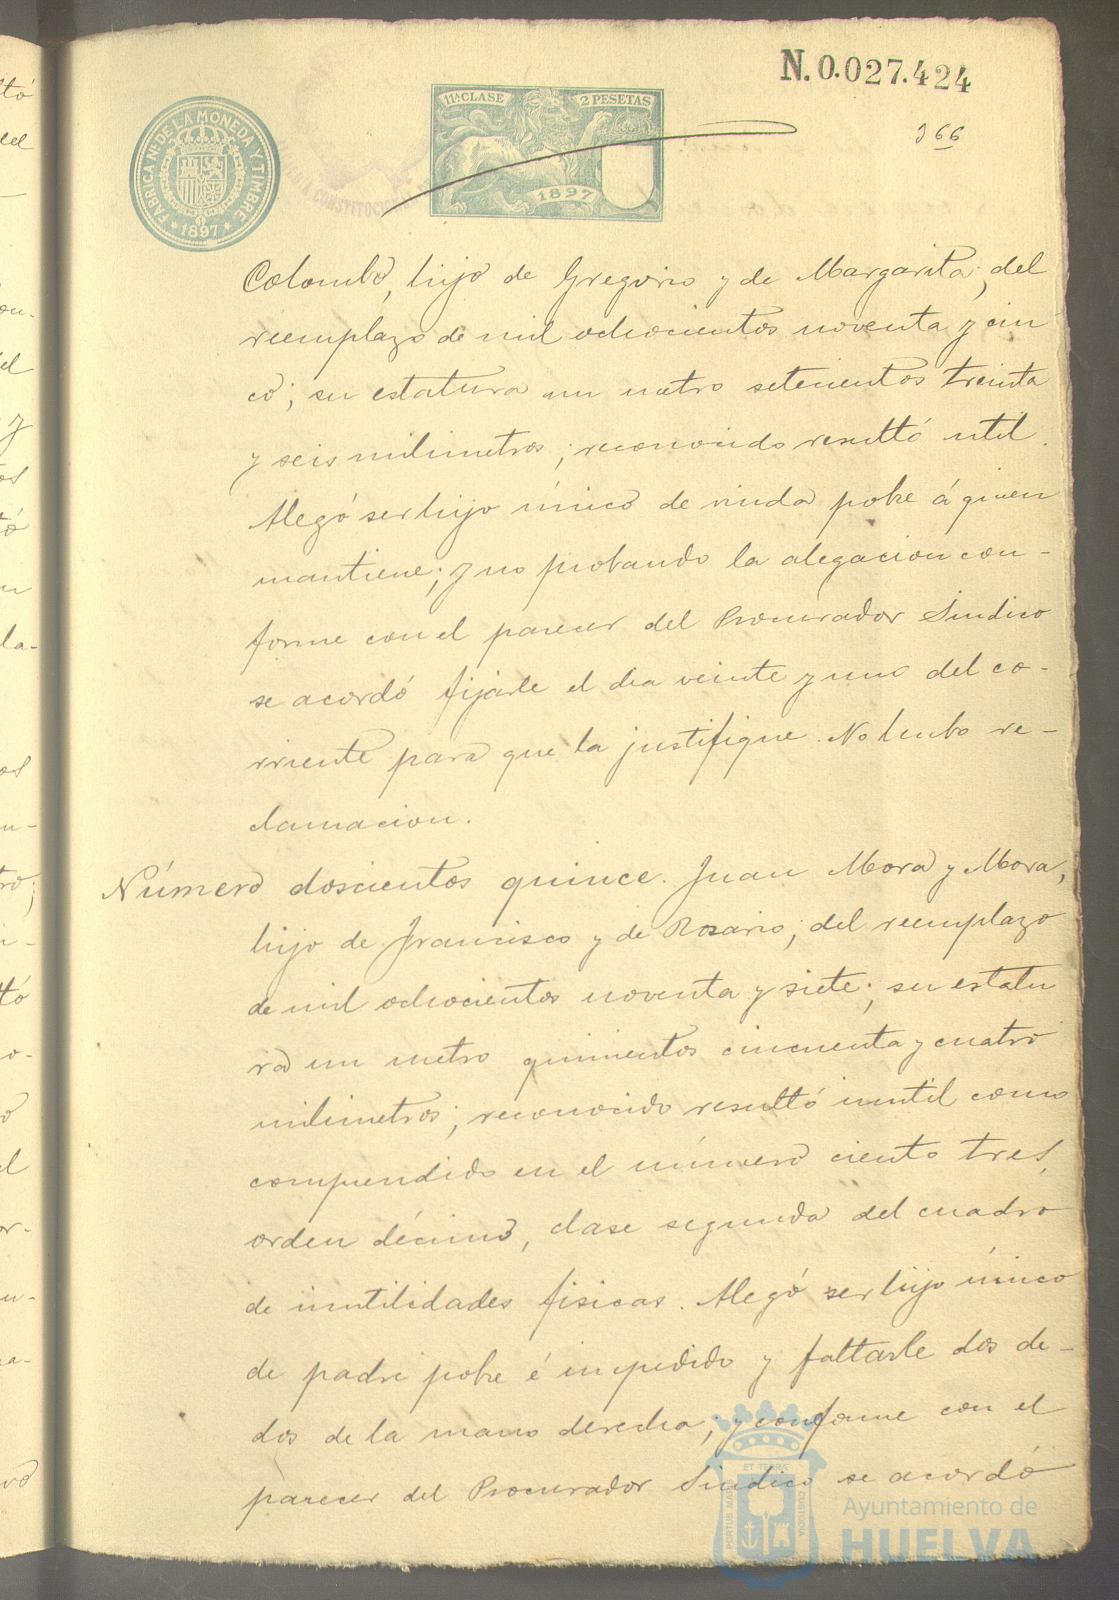 N. 0.027.424
366
FABRICA Nal DE LA MONEDA Y TIMBRE
* 1897 *
11ª CLASE
2 PESETAS
1897
CONSTITUCIONAL
Colombo, hijo de Gregorio y de Margarita; del
reemplazo de mil ochocientos noventa y cin
co; su estatura un metro setecientos treinta
y seis milimetros; reconocido resultó util.
Alegó ser hijo único de viuda pobre á quien
mantiene; y no probando la alegacion con-
forme con el parecer del Procurador Sindico
se acordó fijarle el dia veinte y uno del co-
rriente para que la justifique. No hubo re-
clamacion.
Número doscientos quince. Juan Mora y Mora,
hijo de Francisco y de Rosario; del reemplazo
de mil ochocientos noventa y siete; su estatu
ra un metro quinientos cincuenta y cuatro
milimetros; reconocido resultó inutil como
comprendido en el número ciento tres,
orden décimo, clase segunda del cuadro
de inutilidades fisicas. Alegó ser hijo único
de padre pobre é impedido y faltarle dos de-
dos de la mano derecha; y conforme con el
parecer del Procurador Sindico se acordó
ET TERRÆ
PORTUS MARIS
CUSTODIA
Ayuntamiento de
HUELVA